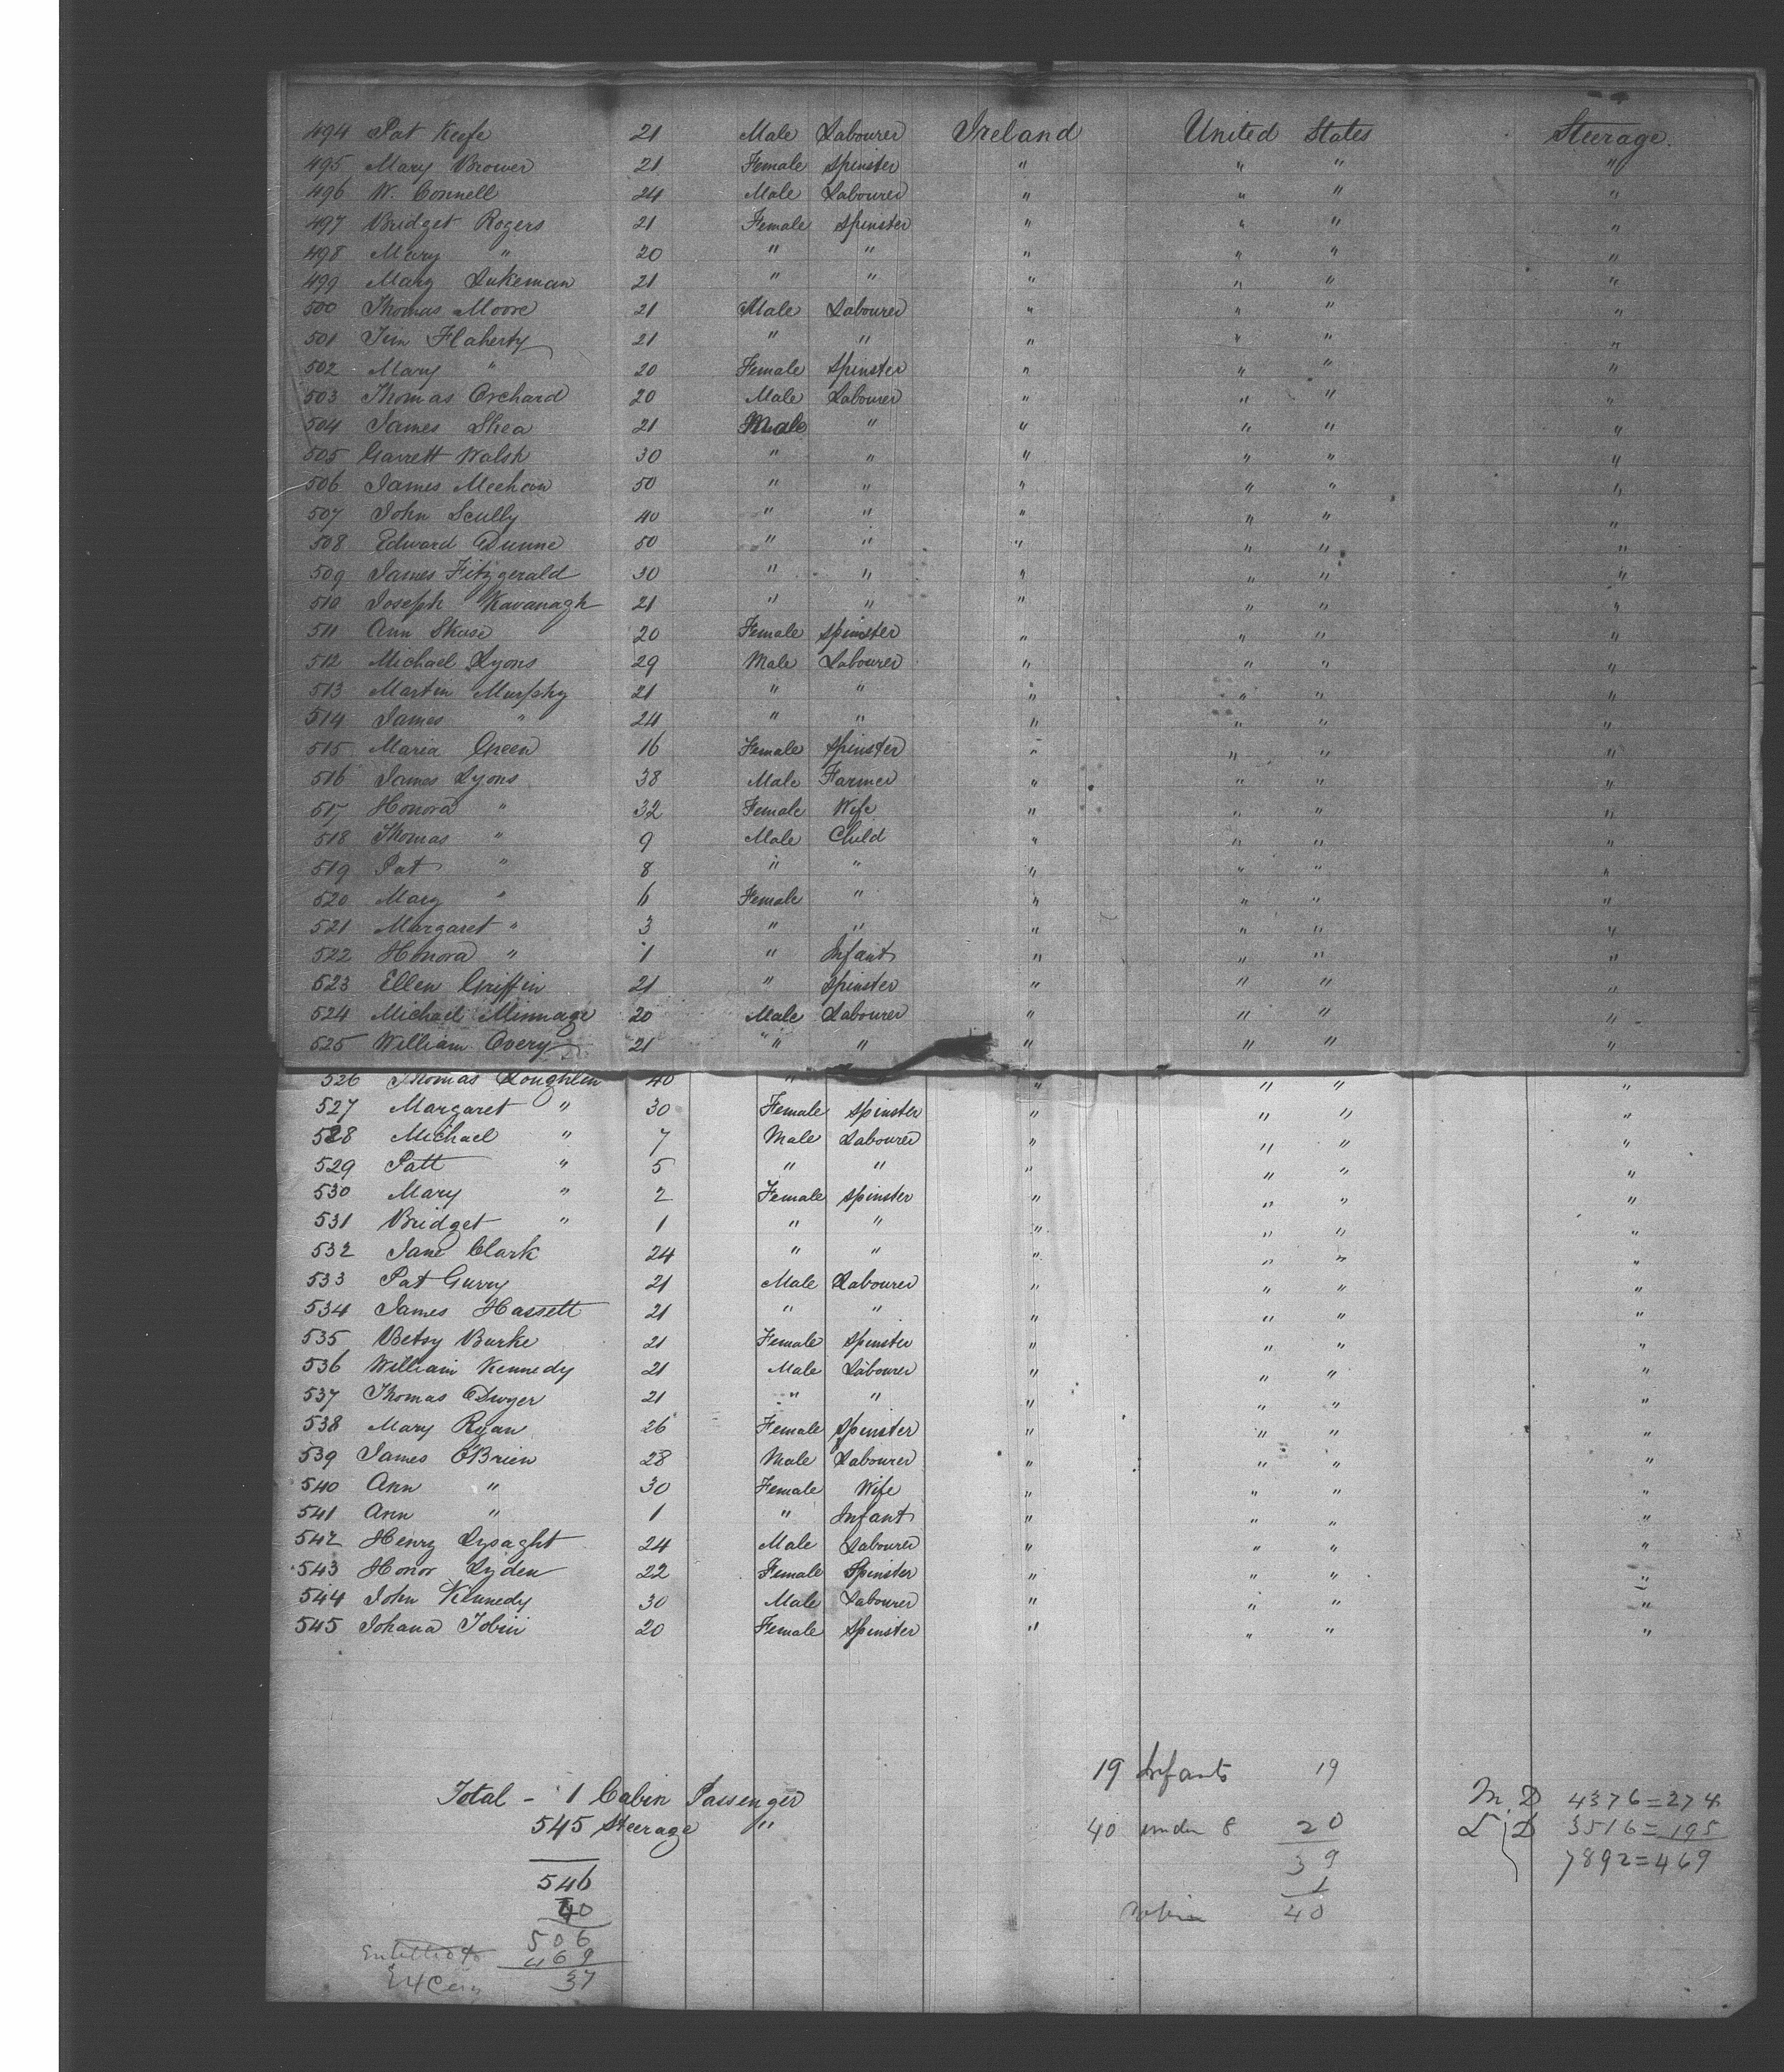 494 Pat Keefe 21 Male Labourer Ireland United States Steerage.
495 Mary Brower 21 Female Spinster " " " "
496 W. Connell 24 Male Labourer " " " "
497 Bridget Rogers 21 Female Spinster " " " "
498 Mary " 20 " " " " " "
499 Mary Lukeman 21 " " " " " "
500 Thomas Moore 21 Male Labourer " " " "
501 Jim Flaherty 21 " " " " " "
502 Mary " 20 Female Spinster " " " "
503 Thomas Orchard 20 Male Labourer " " " "
504 James Shea 21 Male " " " " "
505 Garrett Walsh 30 " " " " " "
506 James Meehan 50 " " " " " "
507 John Scully 40 " " " " " "
508 Edward Dunne 50 " " " " " "
509 James Fitzgerald 30 " " " " " "
510 Joseph Kavanagh 21 " " " " " "
511 Ann Skuse 20 Female Spinster " " " "
512 Michael Lyons 29 Male Labourer " " " "
513 Martin Murphy 21 " " " " " "
514 James " 24 " " " " " "
515 Maria Green 16 Female Spinster " " " "
516 James Lyons 38 Male Farmer " " " "
517 Honora " 32 Female Wife " " " "
518 Thomas " 9 Male Child " " " "
519 Pat " 8 " " " " " "
520 Mary " 6 Female " " " " "
521 Margaret " 3 " " " " " "
522 Honora " 1 " Infant " " " "
523 Ellen Griffin 21 " Spinster " " " "
524 Michael Minnage 20 Male Labourer " " " "
525 William Overy 21 " " " " " "
526 Thomas Loughlin 40 " " " " "
527 Margaret " 30 Female Spinster " " " "
528 Michael " 7 Male Labourer " " " "
529 Patt " 5 " " " " " "
530 Mary " 2 Female Spinster " " " "
531 Bridget " 1 " " " " " "
532 Jane Clark 24 " " " " " "
533 Pat Gurry 21 Male Labourer " " " "
534 James Hassett 21 " " " " " "
535 Betsy Burke 21 Female Spinster " " " "
536 William Kennedy 21 Male Labourer " " " "
537 Thomas Dwyer 21 " " " " " "
538 Mary Ryan 26 Female Spinster " " " "
539 James O'Brien 28 Male Labourer " " " "
540 Ann " 30 Female Wife " " " "
541 Ann " 1 " Infant " " " "
542 Henry Lysaght 24 Male Labourer " " " "
543 Honor Lyden 22 Female Spinster " " " "
544 John Kennedy 30 Male Labourer " " " "
545 Johana Tobin 20 Female Spinster " " " "
19 Infants 19
Total - 1 Cabin Passenger
M. D 4376=274
545 Steerage "
40 under 8 20
L D 3516=195
39
7892=469
546
1
40
40
506
469
37